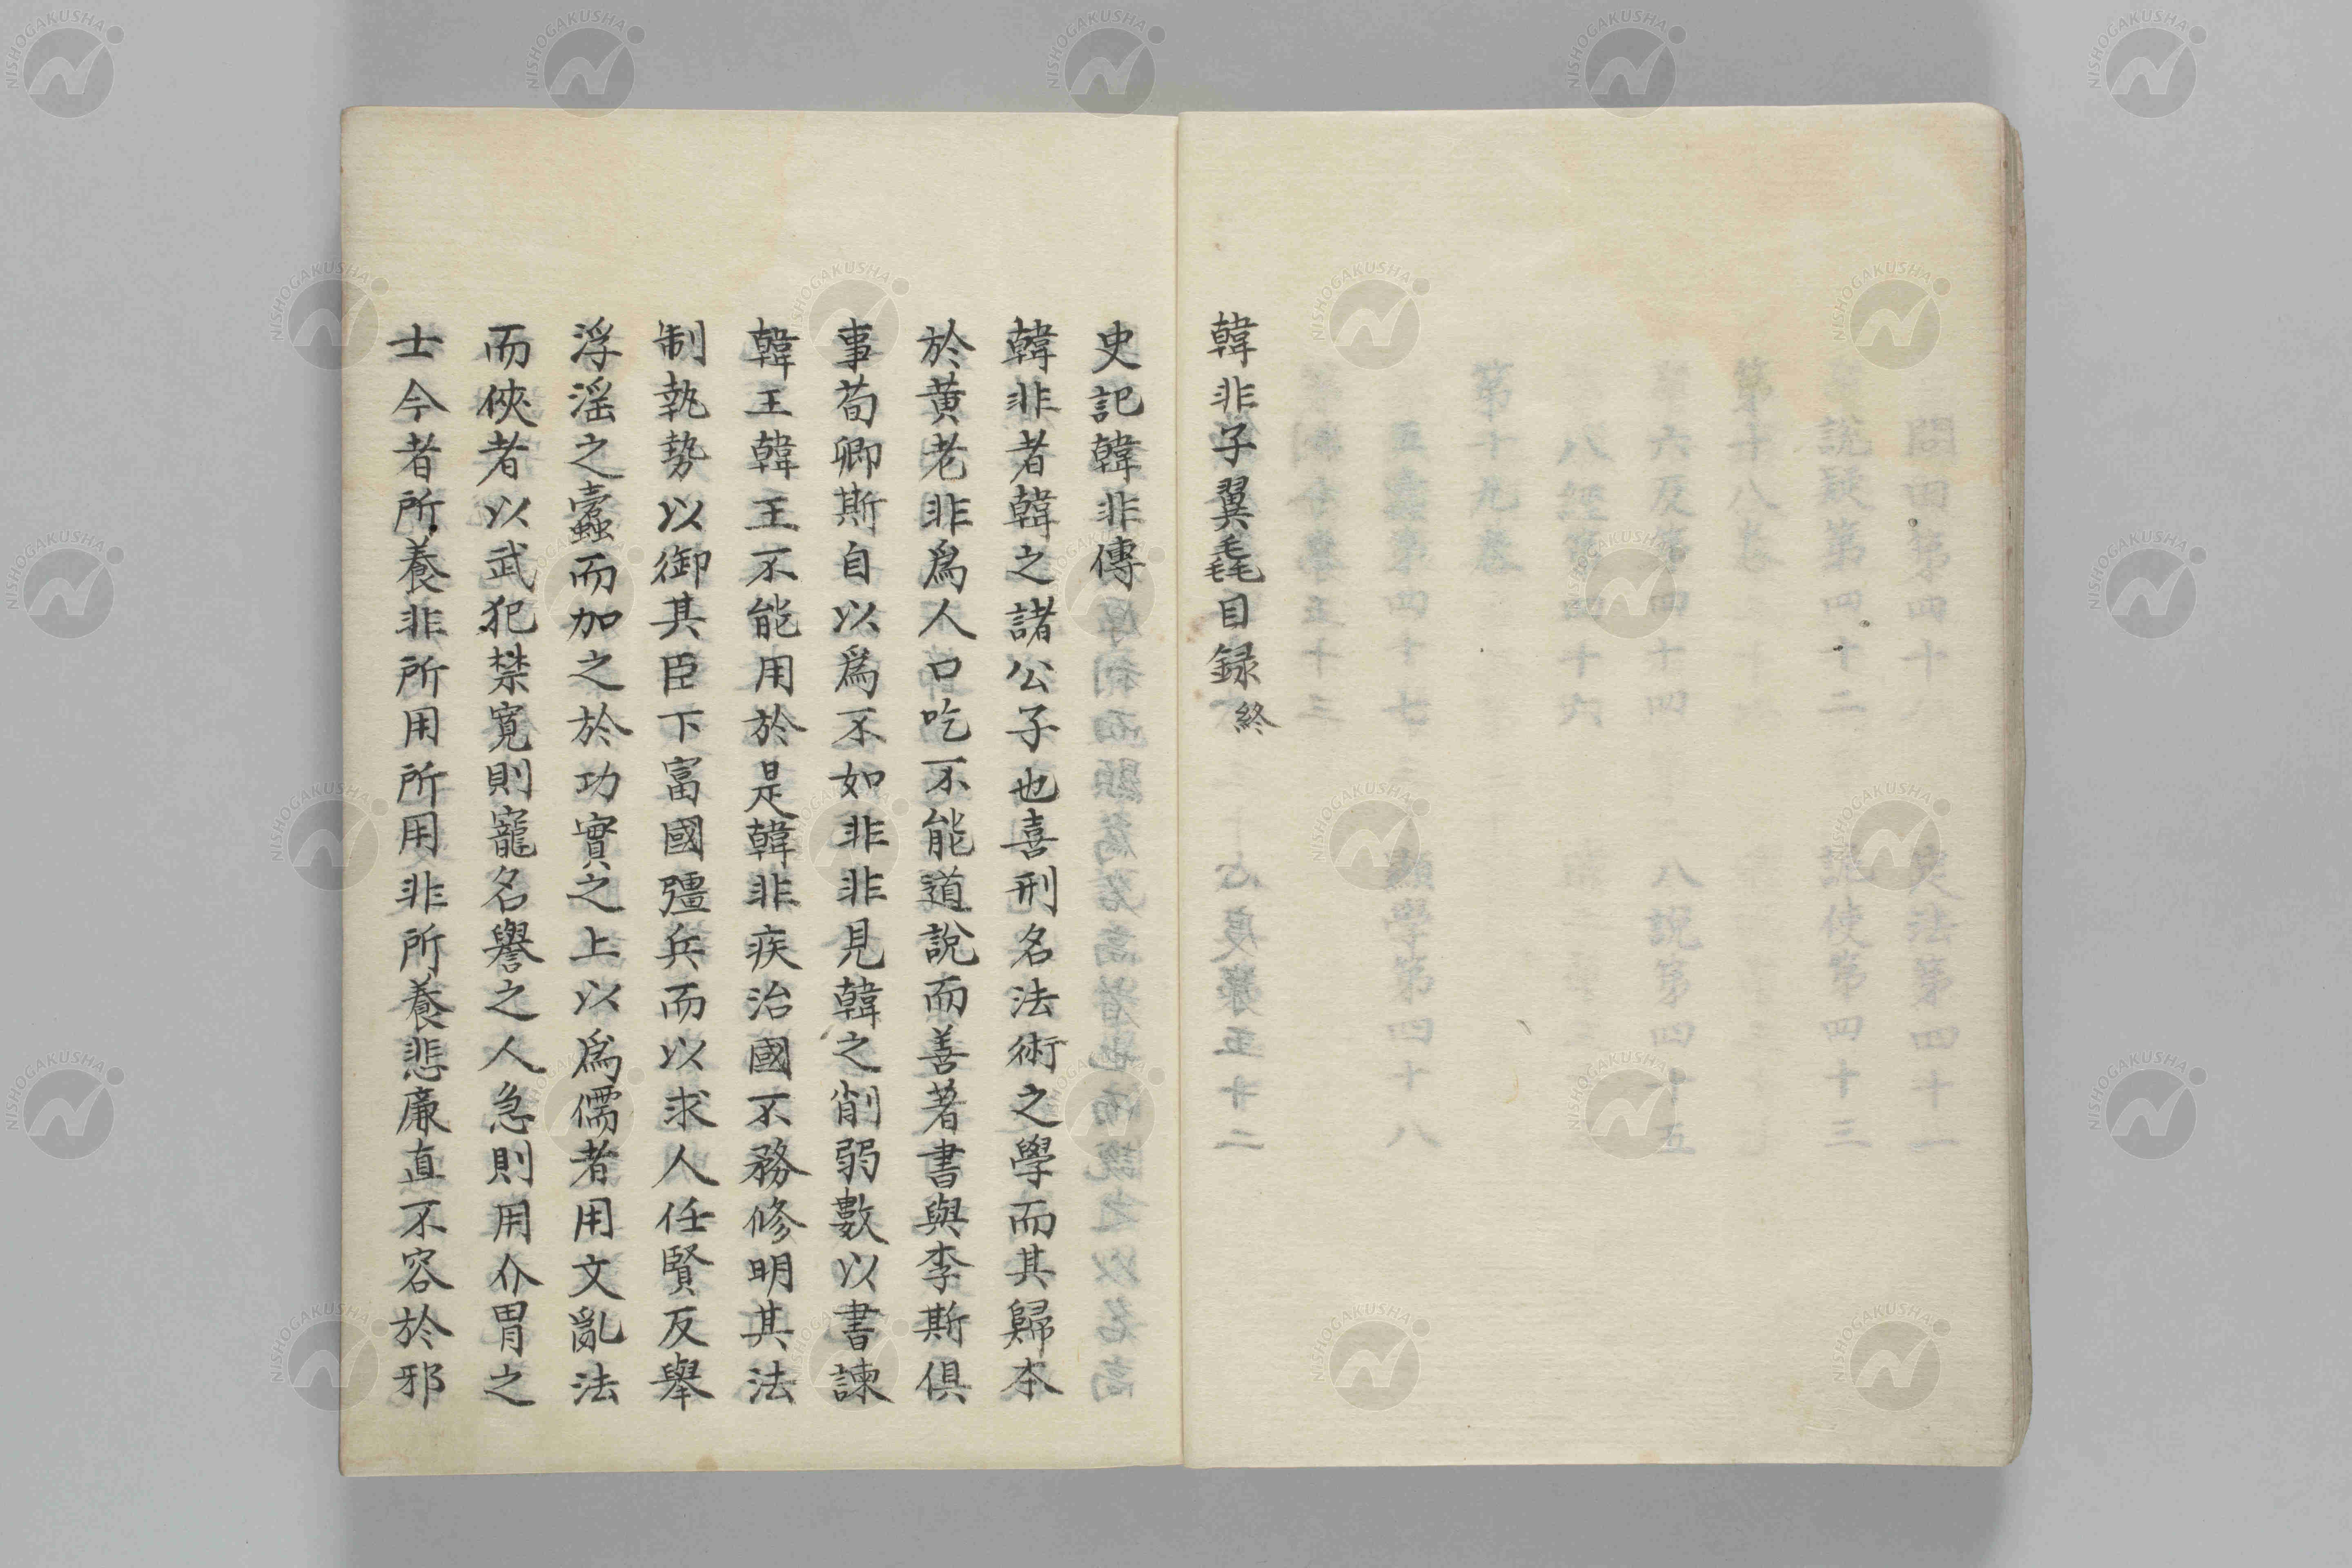 韓非子翼毳目録終
史記韓非傳
韓非者韓之諸公子也喜刑名法術之學而其歸本
於黄老非爲人口吃不能道說而善著書與李斯俱
事荀卿斯自以爲不如非非見韓之削弱數以書諫
韓王韓王不能用於是韓非疾治國不務修明其法
制執勢以御其臣下富國彊兵而以求人任賢反舉
浮滛之蠹而加之於功實之上以爲儒者用文亂法
而俠者以武犯禁寬則寵名譽之人急則用介冑之
士今者所養非所用所用非所養悲廉直不容於邪
NISHOGAKUSHA